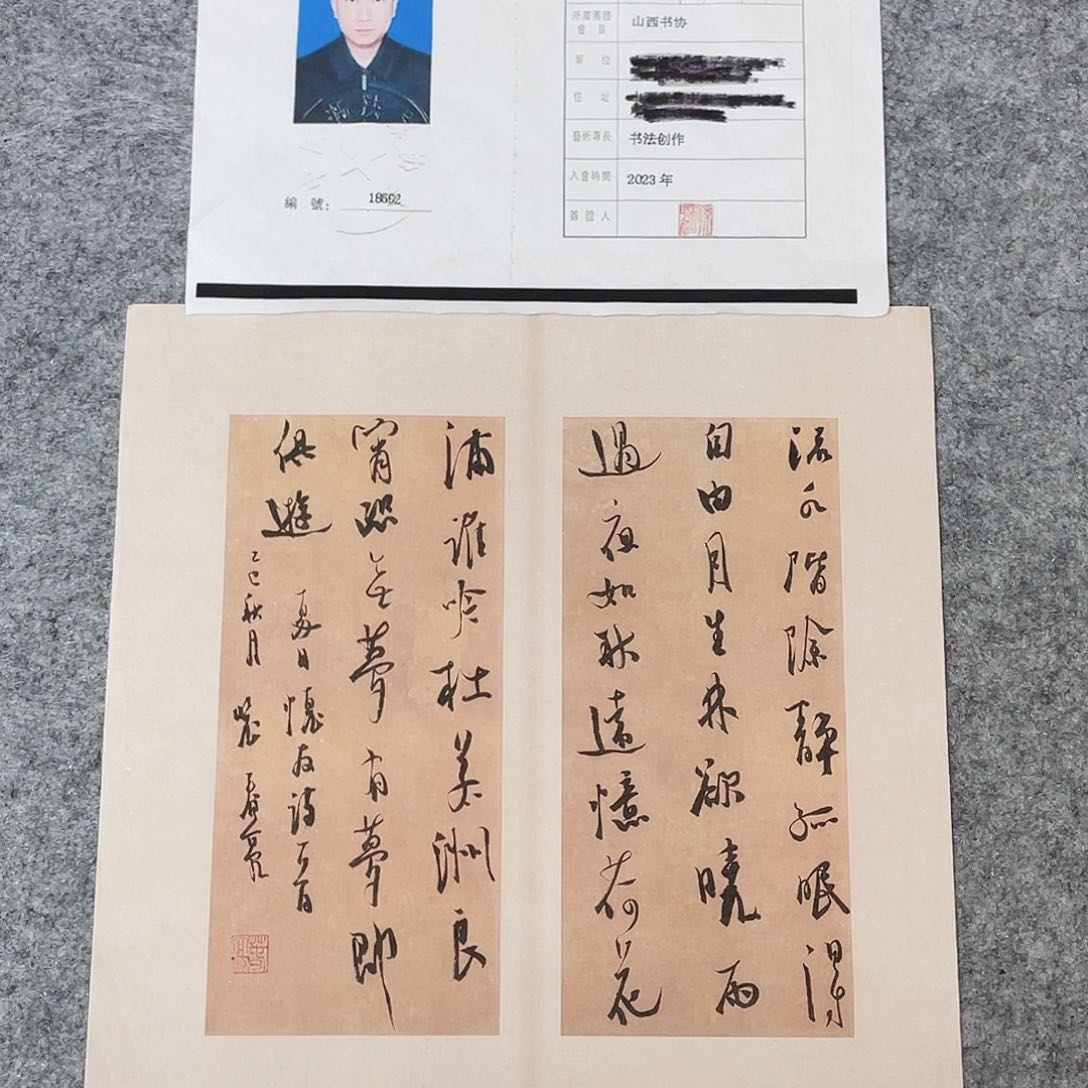 所屬團體 山西书协
會員
單位
住址
藝術專長 书法创作
入會時間 2023 年
簽證人
編號:
流水階除靜孤眠得
自由月生林欲曉雨
過夜如秋遠憶荷花
浦誰吟杜若洲良
宵恐無夢有夢即
俱遊 夏日懷友詩一首
乙巳秋月